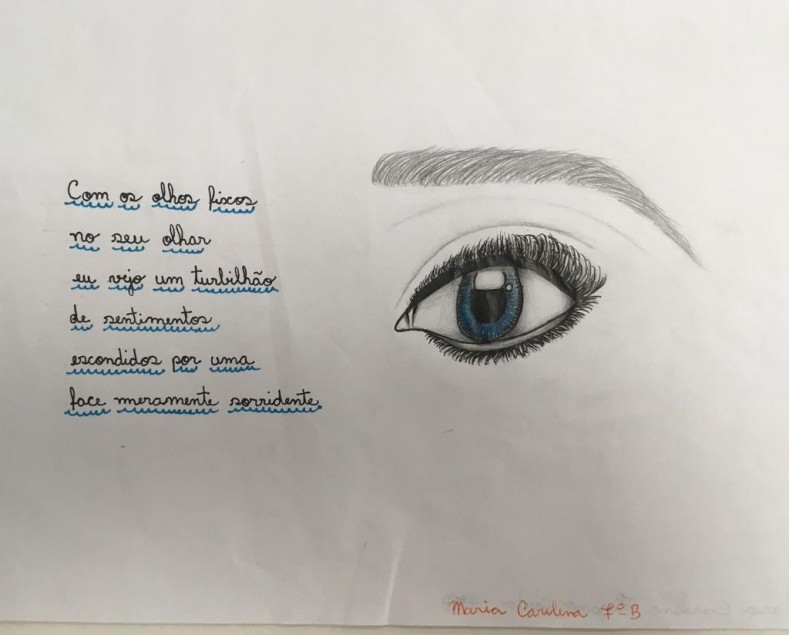 Com os olhos fixos
no seu olhar
eu vejo um turbilhão
de sentimentos
escondidos por uma
face meramente sorridente.
Maria Carolina 7º B